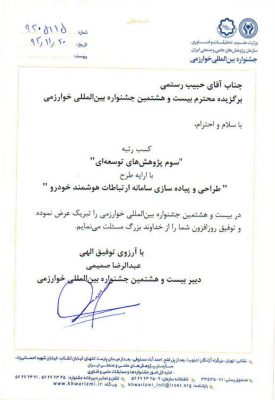 بسمه تعالی
شماره: ۹۳۰۵۱۱۵
تاریخ: ۹۳/۱۱/۲۰
پیوست:
وزارت علوم، تحقیقات و فناوری
سازمان پژوهش‌های علمی و صنعتی ایران
جشنواره بین‌المللی خوارزمی
جناب آقای حبیب رستمی
برگزیده محترم بیست و هشتمین جشنواره بین‌المللی خوارزمی
با سلام و احترام،
کسب رتبه
"سوم پژوهش‌های توسعه‌ای"
با ارایه طرح
" طراحی و پیاده سازی سامانه ارتباطات هوشمند خودرو "
در بیست و هشتمین جشنواره بین‌المللی خوارزمی را تبریک عرض نموده
و توفیق روزافزون شما را از خداوند بزرگ مسئلت می‌نمایم.
با آرزوی توفیق الهی
عبدالرضا صمیمی
دبیر بیست و هشتمین جشنواره بین‌المللی خوارزمی
سازمان پژوهش‌های علمی و صنعتی ایران